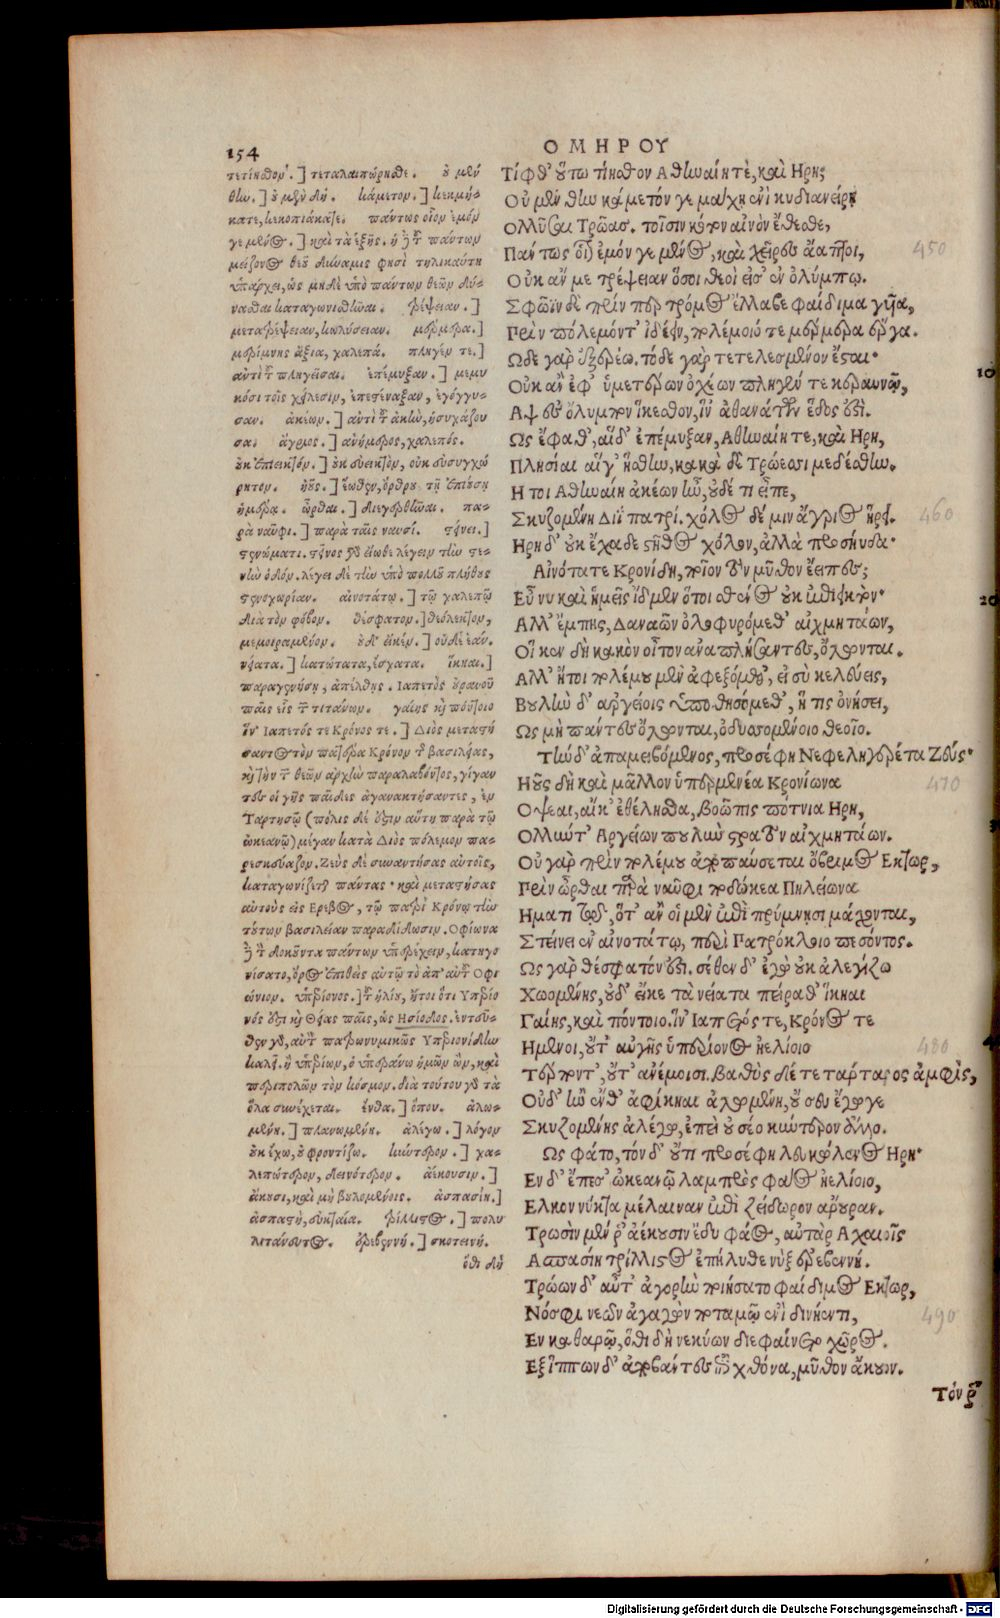 154
ΟΜΗΡΟΥ
τετίησθον.] τεταλαιπώρησθε. οὐ μὲν
θὴν.] οὐ μὲν δή. κάμετον.] κεκμή-
κατε, κεκοπιάκατε. πάντως οἷον ἐμόν
γε μένος.] καὶ τὰ ἑξῆς. ἡ δὲ τῶν πάντων
μείζονος θεοῦ δύναμις φησὶ τηλικαύτη
ὑπάρχει, ὡς μηδὲ ὑπὸ πάντων θεῶν δύ-
νασθαι καταγωνισθῆναι. τρέψειαν.]
μετατρέψειαν, κωλύσειαν. μέρμερα.]
μερίμνης ἄξια, χαλεπά. πληγέντε.]
ἀντὶ τοῦ πληγεῖσαι. ἐπέμυξαν.] μεμυ
κόσι τοῖς χείλεσιν, ἐπεστέναξαν, ἐγόγγυ-
σαν. ἀκέων.] ἀντὶ τοῦ ἀκὴν, ἡσυχάζου
σα. ἄγριος.] ἀνήμερος, χαλεπός.
οὐκ ἐπιεικτόν.] οὐκ εὐεικτὸν, οὐκ εὐσυγχώ
ρητον. ἠοῦς.] ἕωθεν, ὄρθρου τῇ ἐπιούσῃ
ἡμέρᾳ. ὦρθαι.] διεγερθῆναι. πα-
ρὰ ναῦφι.] παρὰ ταῖς ναυσί. στείνει.]
στενώματι. στεῖνος γὰρ εἴωθε λέγειν τὴν στε-
νὴν ὁδόν. λέγει δὲ τὴν ὑπὸ πολλοῦ πλήθους
στενοχωρίαν. αἰνοτάτῳ.] τῷ χαλεπῷ
διὰ τὸν φόβον. θέσφατον.] θεόλεκτον,
μεμοιραμένον. οὐδ' εἴκεν.] οὐδὲ ἐὰν.
νείατα.] κατώτατα, ἔσχατα. ἵκηαι.]
παραγενήσῃ, ἀπέλθῃς. Ιαπετὸς οὐρανοῦ
παῖς εἷς τῶν τιτάνων. γαίης καὶ πόντοιο
ἵν' Ιαπετός τε Κρόνος τε.] Διὸς μεταστή
σαντος τὸν πατέρα Κρόνον τῆς βασιλείας,
καὶ τὴν τῶν θεῶν ἀρχὴν παραλαβόντος, γίγαν
τες οἱ γῆς παῖδες ἀγανακτήσαντες, ἐν
Ταρτησῷ (πόλις δέ ἐστιν αὕτη παρὰ τῷ
ὠκεανῷ) μέγαν κατὰ Διὸς πόλεμον πα-
ρεσκεύαζον. Ζεὺς δὲ συναντήσας αὐτοῖς,
καταγωνίζεται πάντας· καὶ μεταστήσας
αὐτοὺς εἰς Ερεβος, τῷ πατρὶ Κρόνῳ τὴν
τούτων βασιλείαν παραδίδωσιν. Οφίωνα
δὲ τὸν δοκοῦντα πάντων ὑπερέχειν, κατηγω
νίσατο, ὄρος ἐπιθεὶς αὐτῷ τὸ ἀπ' αὐτοῦ Οφι
ώνιον. ὑπερίονος.] τοῦ ἡλίου, ἤτοι ὅτι Υπερίο
νός ἐστι καὶ Θείας παῖς, ὡς Ησίοδος. ἐντεῦ-
θεν γὰρ, αὐτὸν πατρωνυμικῶς Υπεριονίδην
καλεῖ. ἢ ὑπερίων, ὁ ὑπεράνω ἡμῶν ὢν, καὶ
περιπολῶν τὸν κόσμον. διὰ τούτου γὰρ τὰ
ὅλα συνέχεται. ἔνθα.] ὅπου. ἀλω-
μένη.] πλανωμένη. ἀλέγω.] λόγον
οὐκ ἔχω, οὐ φροντίζω. κύντερον.] χα-
λεπώτερον, δεινότερον. ἀέκουσιν.]
ἄκουσι, καὶ μὴ βουλομένοις. ἀσπασίη.]
ἀσπαστὴ, εὐκταία. τρίλλιστος.] πολυ
λιτάνευτος. ἐρεβεννή.] σκοτεινή.
ὅθι δὴ
Τίφθ' οὕτω τίησθον Αθηναίη τὲ, καὶ Ηρη;
Οὐ μὲν θὴν κάμετόν γε μάχῃ ἐνὶ κυδιανείρῃ
Ολλῦσαι Τρῶας. τοῖσιν κότον αἰνὸν ἔθεσθε,
Πάντως οἷον ἐμόν γε μένος, καὶ χεῖρες ἄαπτοι,
450
Οὐκ ἄν με τρέψειαν ὅσοι θεοὶ εἰσ' ἐν ὀλύμπῳ.
Σφῶϊν δὲ πρίν περ τρόμος ἔλλαβε φαίδιμα γυῖα,
Πρὶν πόλεμόντ' ἰδέειν, πολέμοιό τε μέρμερα ἔργα.
Ωδε γὰρ ἐξερέω. τόδε γὰρ τετελεσμένον ἔσται·
10
Οὐκ ἂν ἐφ' ὑμετέρων ὀχέων πληγέντε κεραυνῷ,
Αψ ἐς ὄλυμπον ἵκεσθον, ἵν' ἀθανάτων ἕδος ἐστί.
Ως ἔφαθ', αἵδ' ἐπέμυξαν, Αθηναίη τε, καὶ Ηρη,
Πλησίαι αἵγ' ἥσθην, κακὰ δὲ Τρώεσσι μεδέσθην.
Η τοι Αθηναίη ἀκέων ἦν, οὐδέ τι εἶπε,
Σκυζομένη Διῒ πατρί. χόλος δέ μιν ἄγριος ᾕρει.
460
Ηρῃ δ' οὐκ ἔχαδε στῆθος χόλον, ἀλλὰ προσηύδα·
Αἰνότατε Κρονίδη, ποῖον τὸν μῦθον ἔειπες;
Εὖ νυ καὶ ἡμεῖς ἴδμεν ὅτοι σθένος οὐκ ἐπιεικτόν·
20
Αλλ' ἔμπης, Δαναῶν ὀλοφυρόμεθ' αἰχμητάων,
Οἵ κεν δὴ κακὸν οἶτον ἀναπλήσαντες, ὄλωνται.
Αλλ' ἤτοι πολέμου μὲν ἀφεξόμεθ', εἰ σὺ κελεύεις,
Βουλὴν δ' αργείοις ὑποθησόμεθ', ἥ τις ὀνήσει,
Ως μὴ πάντες ὄλωνται, ὀδυσσαμένοιο θεοῖο.
Τὴν δ' ἀπαμειβόμενος, προσέφη Νεφεληγερέτα Ζεύς·
Ηοῦς δὴ καὶ μᾶλλον ὑπερμενέα Κρονίωνα
470
Οψεαι, αἴκ' ἐθέλησθα, βοῶπις πότνια Ηρη,
Ολλύντ' Αργείων πουλὺν στρατὸν αἰχμητάων.
Οὐ γὰρ πρὶν πολέμου ἀποπαύσεται ὄβριμος Εκτωρ,
Πρὶν ὦρθαι παρὰ ναῦφι ποδώκεα Πηλείωνα
Ηματι τῷδ', ὅτ' ἂν οἱ μὲν ἐπὶ πρύμνῃσι μάχωνται,
Στείνει ἐν αἰνοτάτῳ, περὶ Πατρόκλοιο πεσόντος.
Ως γὰρ θέσφατόν ἐστι. σέθεν δ' ἐγὼ οὐκ ἀλεγίζω
Χωομένης, οὐδ' εἴκε τὰ νείατα πείραθ' ἵκηαι
Γαίης, καὶ πόντοιο. ἵν' Ιαπετός τε, Κρόνος τε
Ημενοι, οὔτ' αὐγῇς ὑπερίονος ἠελίοιο
480
Τέρποντ', οὔτ' ἀνέμοισι. βαθὺς δέ τε τάρταρος ἀμφίς,
Οὐδ' ἢν ἔνθ' ἀφίκηαι ἀλωμένη, οὔ σευ ἔγωγε
Σκυζομένης ἀλέγω, ἐπεὶ οὐ σέο κύντερον ἄλλο.
Ως φάτο, τόν δ' οὔτι προσέφη λευκώλενος Ηρη·
Εν δ' ἔπεσ' ὠκεανῷ λαμπρὸς φάος ἠελίοιο,
Ελκον νύκτα μέλαιναν ἐπὶ ζείδωρον ἄρουραν.
Τρωσὶν μέν ῥ' ἀέκουσιν ἔδυ φάος, αὐτὰρ Αχαιοῖς
Ασπασίη τρίλλιστος ἐπήλυθε νὺξ ἐρεβεννή.
Τρώων δ' αὖτ' ἀγορὴν ποιήσατο φαίδιμος Εκτωρ,
Νόσφι νεῶν ἀγαγὼν ποταμῷ ἐνὶ δινήεντι,
490
Εν καθαρῷ, ὅθι δὴ νεκύων διεφαίνετο χῶρος.
Εξ ἵππων δ' ἀποβάντες ἐπὶ χθόνα, μῦθον ἄκουον.
Τόν ῥ'
Digitalisierung gefördert durch die Deutsche Forschungsgemeinschaft - DFG